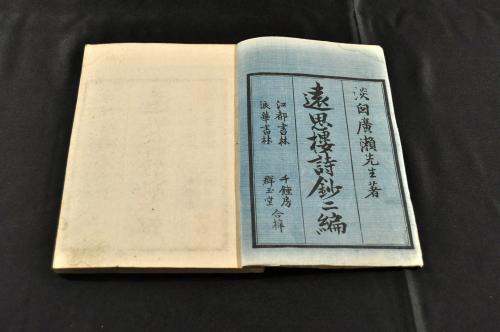 淡窗廣瀬先生著
遠思樓詩鈔二編
江都書林 千鍾房
浪華書林 群玉堂 合梓